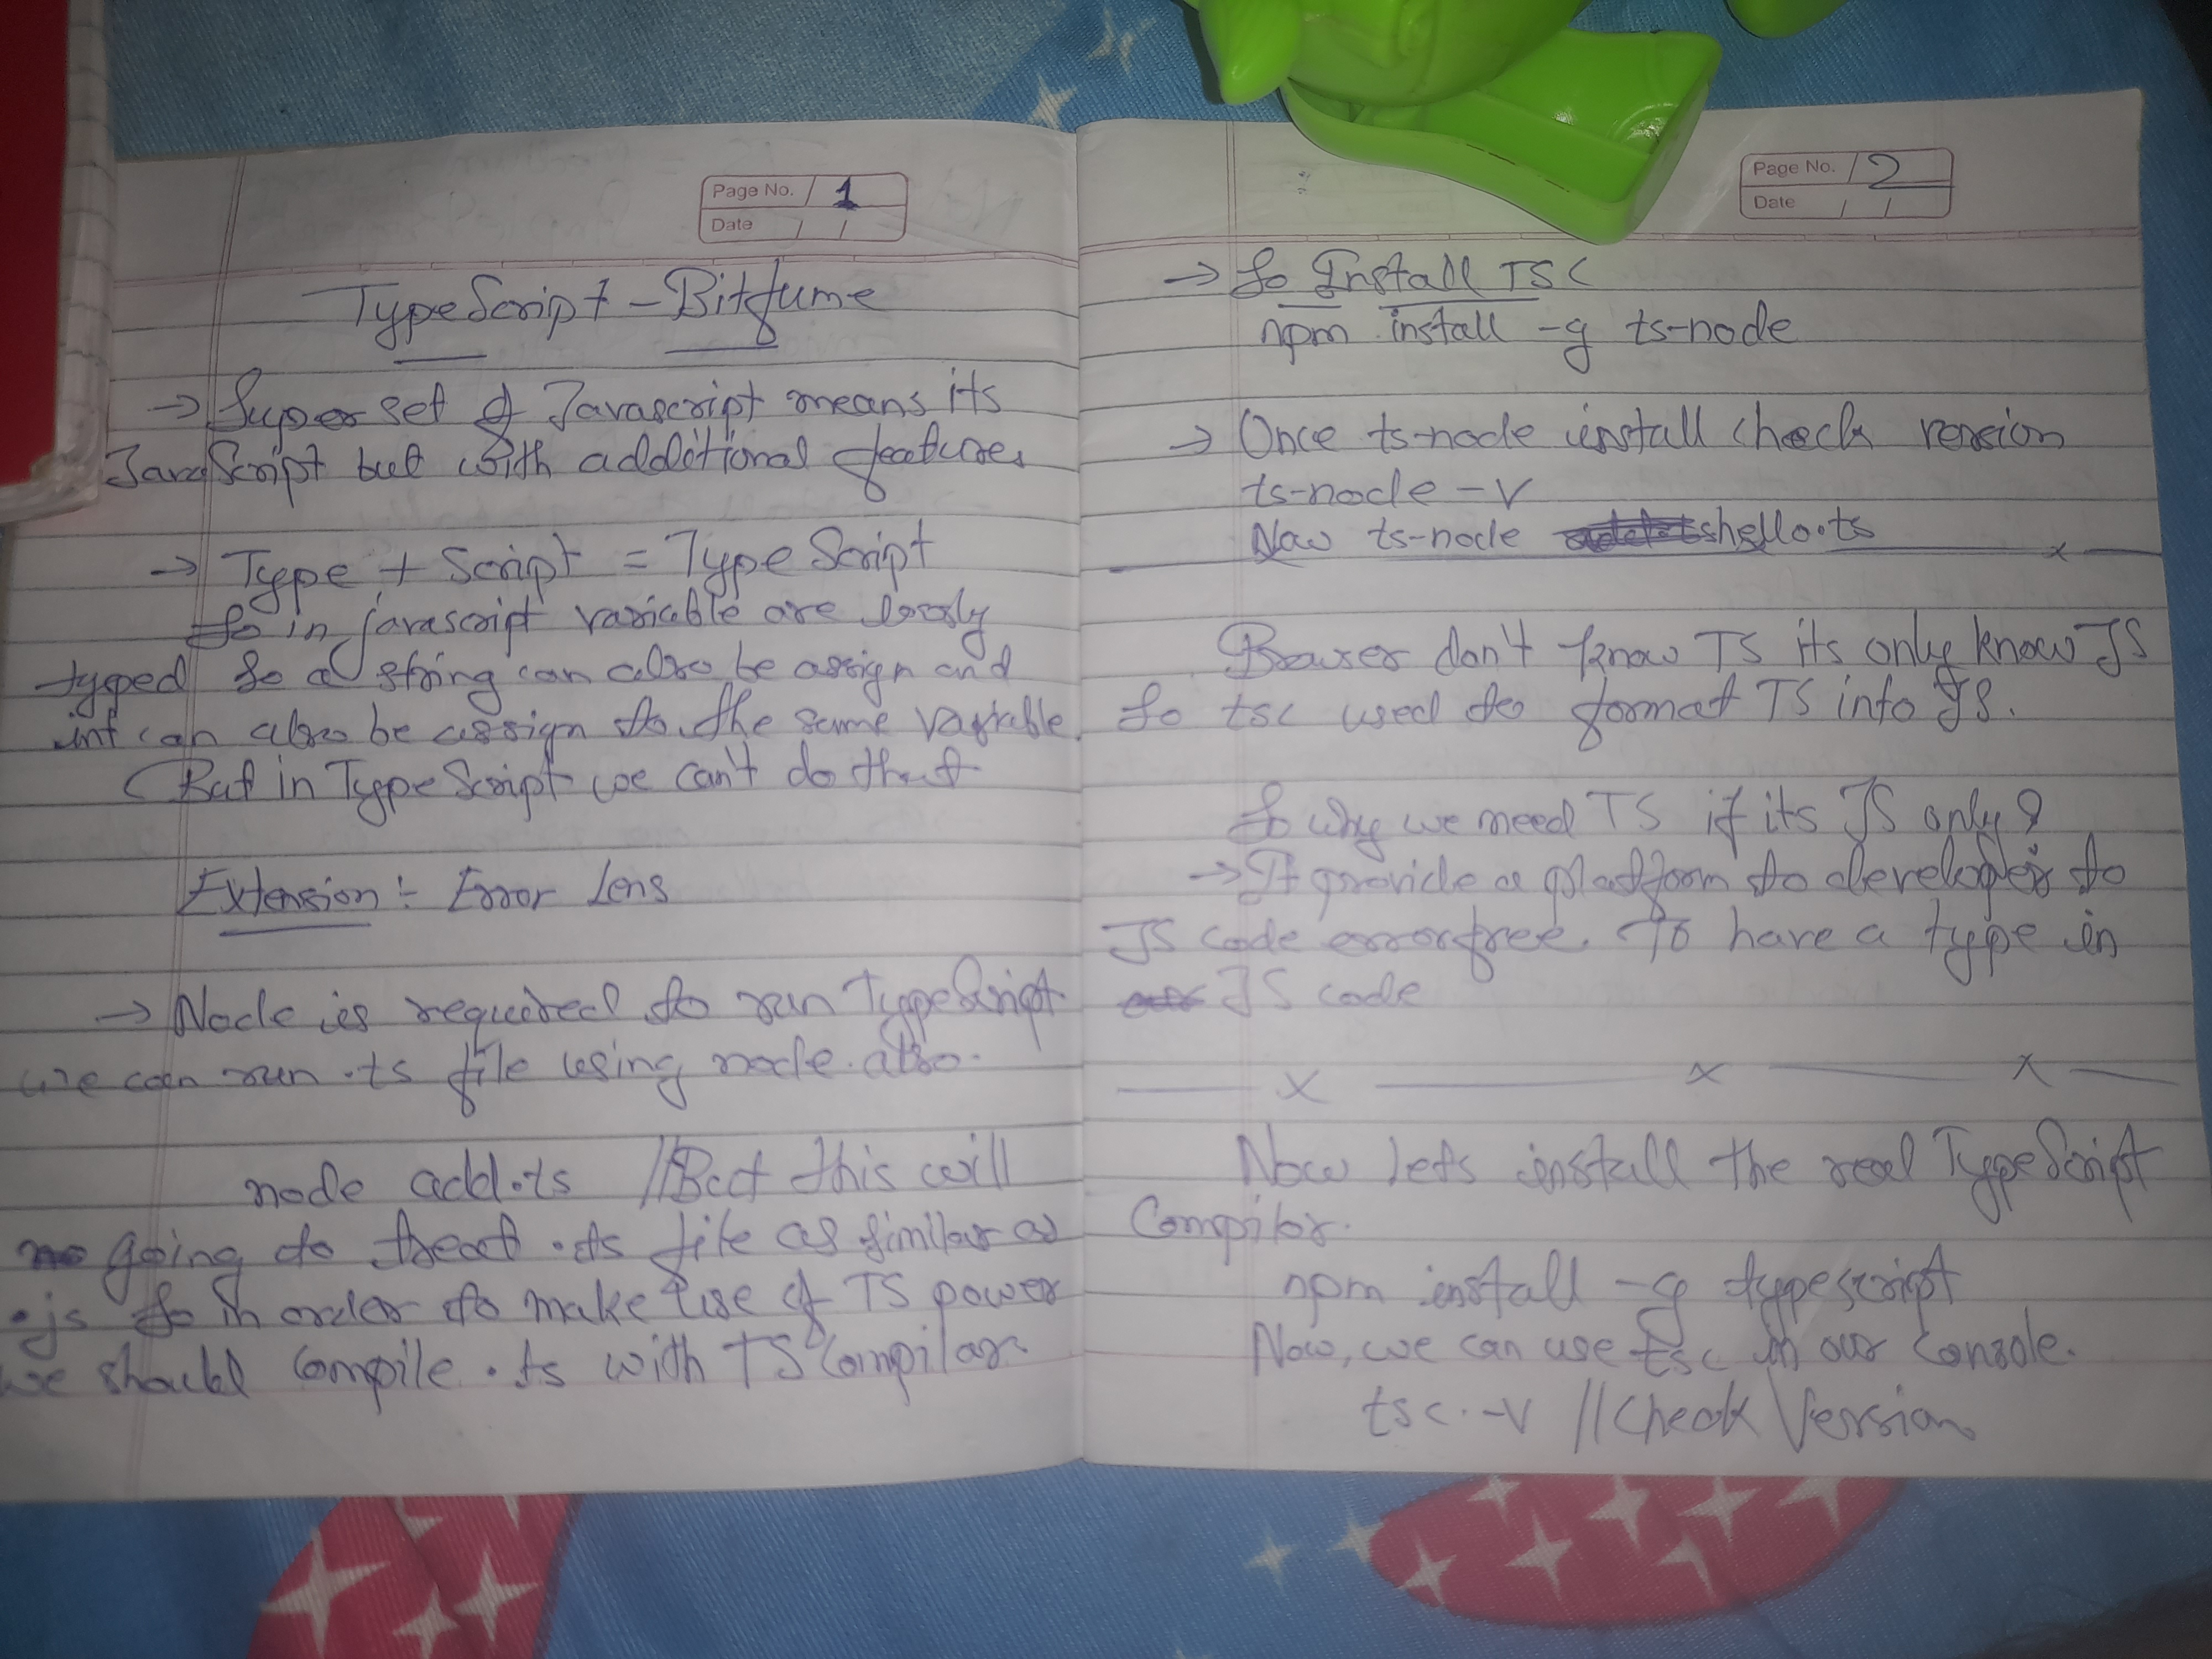 Page No. 1
Date / /
TypeScript - Bitfume
→ Superset of Javascript means its
JavaScript but with additional features
→ Type + Script = TypeScript
So in javascript variable are loosly
typed So a string can also be assign and
int can also be assign to the same variable.
But in TypeScript we can't do that
Extension :- Error Lens
→ Node is required to run TypeScript
we can run .ts file using node also.
node add.ts //But this will
going to treat .ts file as similar as
.js So in order to make use of TS power
we should compile .ts with TS Compilar
Page No. 2
Date / /
→ So Install TSC
npm install -g ts-node
→ Once ts-node install check version
ts-node -v
Now ts-node hello.ts
Browser don't know TS its only know JS
So tsc used to format TS into JS.
So why we need TS if its JS only ?
→ It provide a platform to developers to
JS code error free. To have a type in
JS code
x x x
Now lets install the real TypeScript
Compilor.
npm install -g typescript
Now, we can use tsc in our console.
tsc -v //Check Version